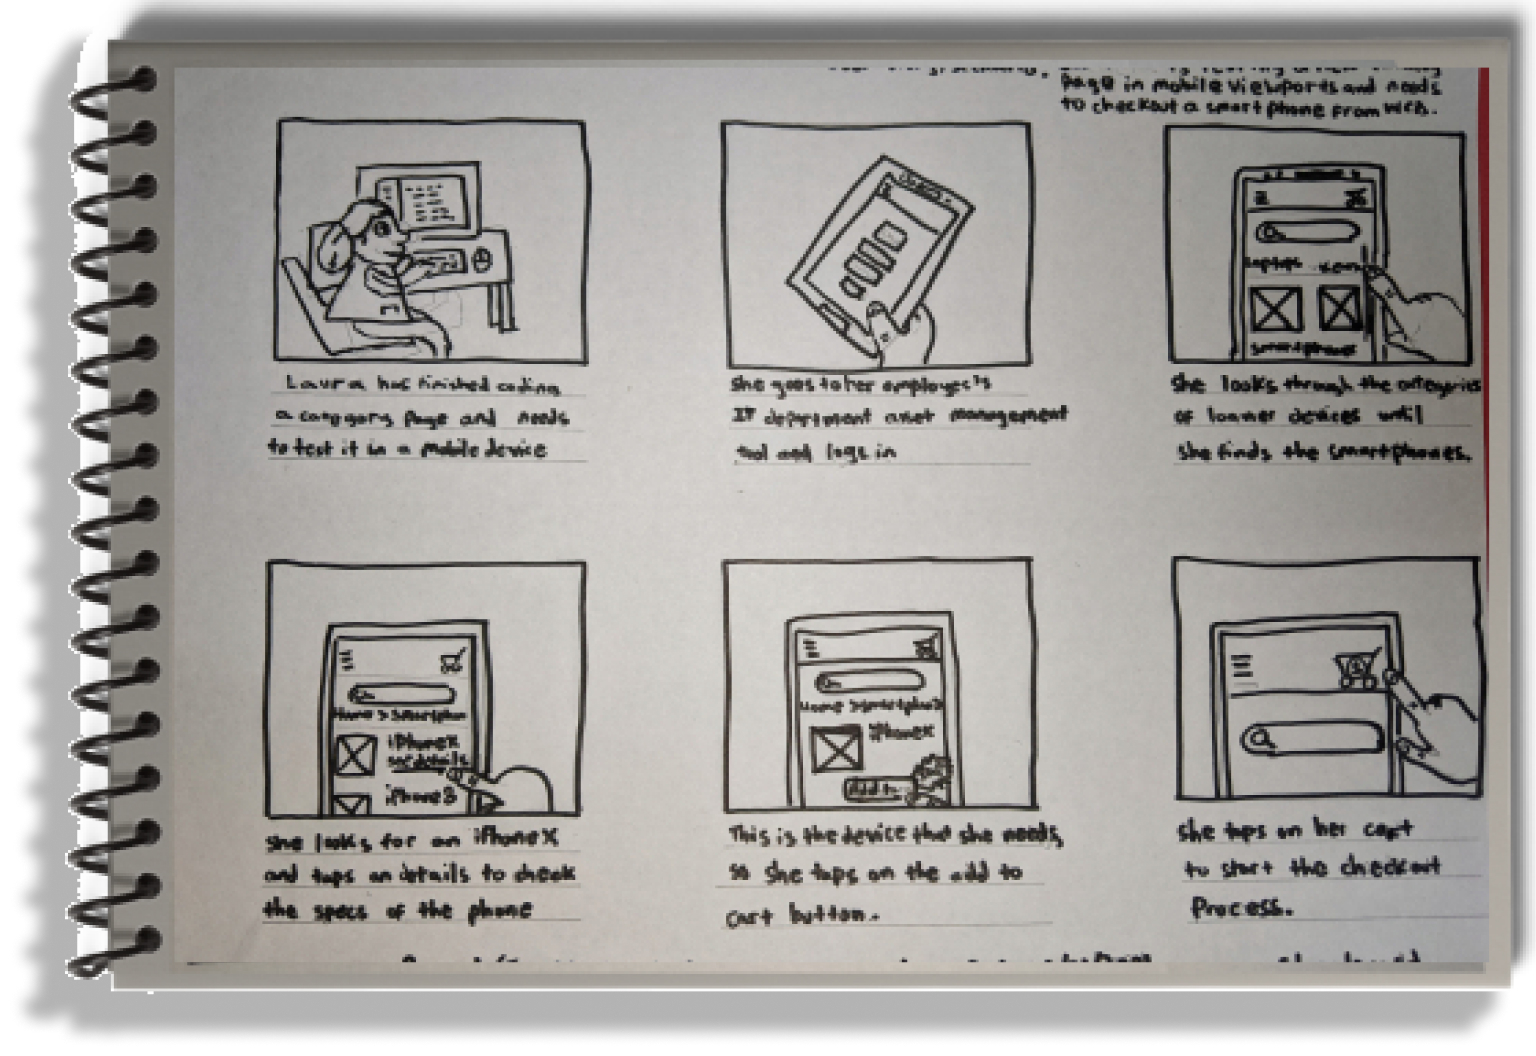 page in mobile viewports and needs
to checkout a smartphone from web.
Laptops
smartphones
Laura has finished coding
a category page and needs
to test it in a mobile device
She goes to her employer's
IT department asset management
tool and logs in
She looks through the categories
of loaner devices until
she finds the smartphones.
Home > Smartphon
iPhone X
see details
iPhone 8
Home > Smartphones
iPhone X
Add to
She looks for an iPhone X
and taps on details to check
the specs of the phone
This is the device that she needs,
so she taps on the add to
cart button.
She taps on her cart
to start the checkout
Process.